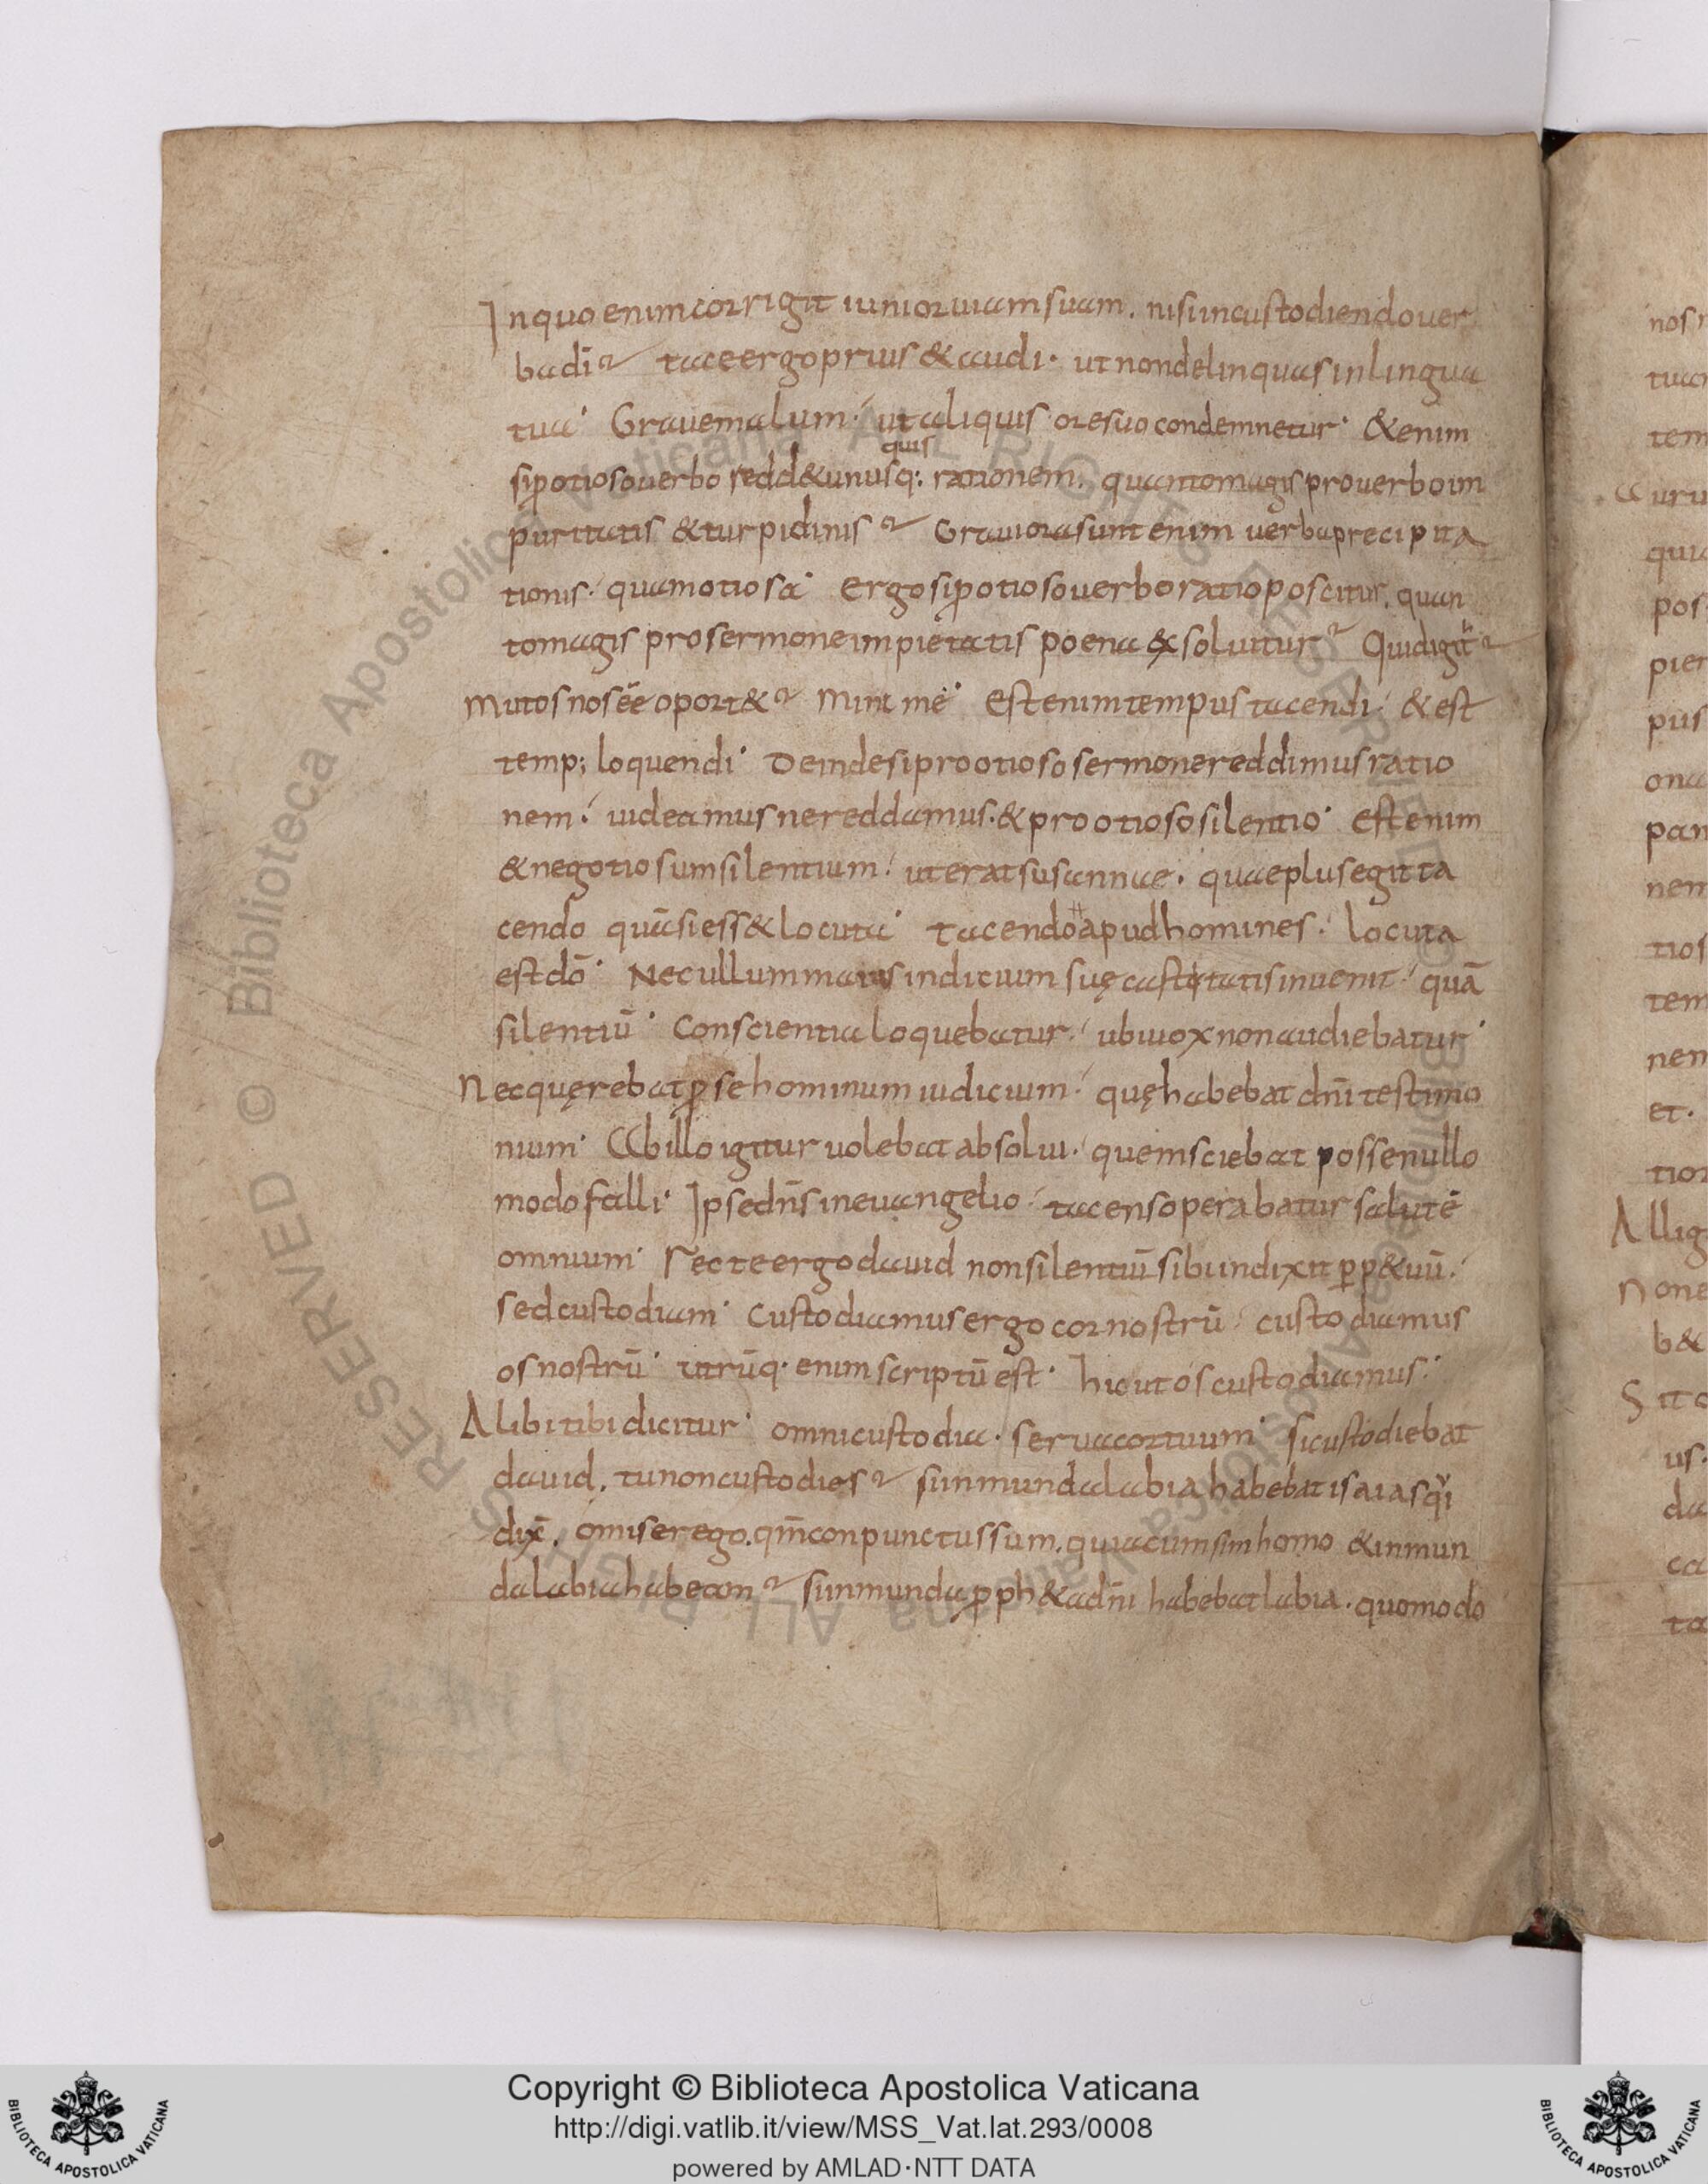 In quo enim corrigit iunior uiam suam. nisi in custodiendo uer
ba dī? tace ergo prius & audi. ut non delinquas in lingua
tua. Graue malum. ut aliquis ore suo condemnetur. &enim
quis
si ꝓ otioso uerbo redd& unusq: rationem. quanto magis pro uerbo im
puritatis & turpidinis? Grauiora sunt enim uerba precipita
tionis. quam otiosa. ergo si ꝓ otioso uerbo ratio poscitur. quan
to magis pro sermone impietatis poena exsoluitur? Quid igit̃?
mutos nos ēē oport&? minime. est enim tempus tacendi. & est
temp; loquendi. Deinde si pro otioso sermone reddimus ratio
nem. uideamus ne reddamus. & pro otioso silentio. est enim
& negotiosum silentium. ut erat susannae. quae plus egit ta
cendo quā si ess& locuta. tacendo apud homines. locuta
est dō. Nec ullum maius indicium suę castitatis inuenit. quā
silentiū. Conscientia loquebatur. ubi uox non audiebatur.
Nec quęrebat ꝓ se hominum iudicium. quę habebat dn̄i testimo
nium. Ab illo igitur uolebat absolui. quem sciebat posse nullo
modo falli. Ipse dn̄s in euangelio. tacens operabatur salutē
omnium. recte ergo dauid non silentiū sibi indixit ꝑp&uū.
sed custodiam. Custodiamus ergo cor nostrū. custodiamus
os nostrū. utrūq. enim scriptū est. hic ut os custodiamus.
Alibi tibi dicitur. omni custodia. serua cor tuum. si custodiebat
dauid. tu non custodies? si inmunda labia habebat isaias qui
dix̄. o miser ego. qm̄ conpunctus sum. quia cum sim homo & inmun
da labia habeam? si inmunda ꝓph&a dn̄i habebat labia. quomodo
nos
tua
tem
Auru
quia
pos
pier
pus
ona
pan
nem
tios
tem
nem
et.
tion
Allig
None
b&
Sit
us.
da
ca
ta
© Biblioteca Apostolica Vaticana ALL RIGHTS RESERVED
© Biblioteca Apostolica Vaticana ALL RIGHTS RESERVED
Copyright © Biblioteca Apostolica Vaticana
http://digi.vatlib.it/view/MSS_Vat.lat.293/0008
powered by AMLAD·NTT DATA
BIBLIOTECA APOSTOLICA VATICANA
BIBLIOTECA APOSTOLICA VATICANA